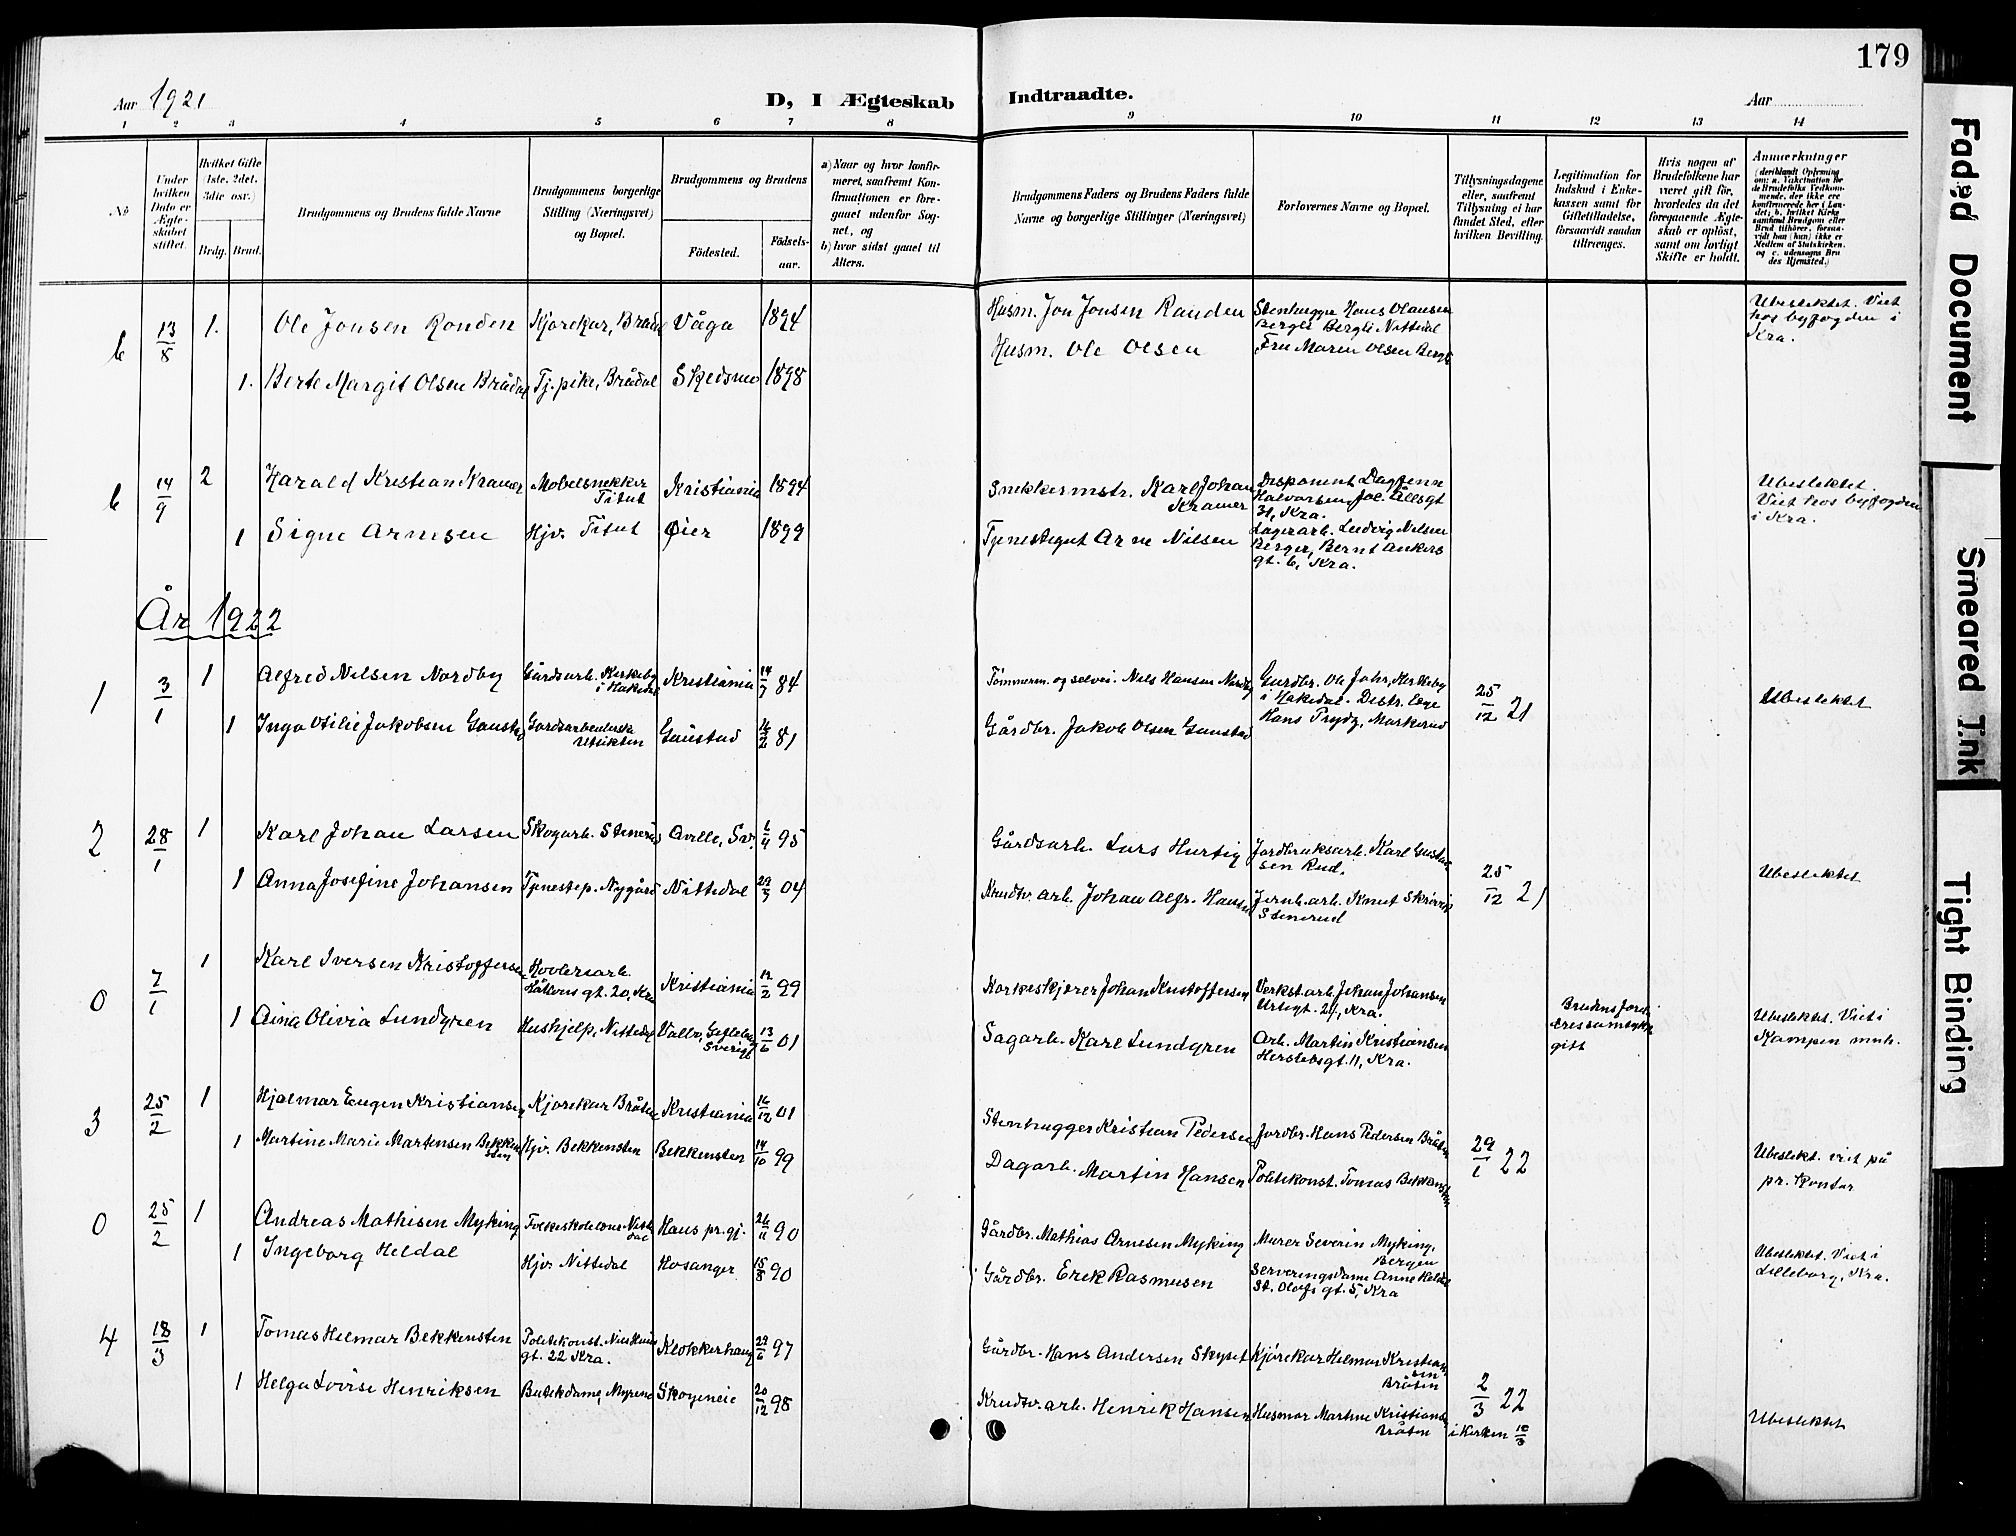 179
Aar 1921
D, I Ægteskab Indtraadte.
Aar
1 2 3 4 5 6 7 8 9 10 11 12 13 14
No
Under hvilken Dato er Ægteskabet stiftet.
Hvilket Gifte (1ste, 2det, 3die osv.)
Brdg. Brud.
Brudgommens og Brudens fulde Navne
Brudgommens borgerlige Stilling (Næringsvei) og Bopæl.
Brudgommens og Brudens
Födested.
Födselsaar.
a) Naar og hvor konfirmeret, saafremt Konfirmationen er foregaaet udenfor Sognet, og
b) hvor sidst gaaet til Alters.
Brudgommens Faders og Brudens Faders fulde Navne og borgerlige Stillinger (Næringsvei)
Forlovernes Navne og Bopæl.
Tillysningsdagene eller, saafremt Tillysning ei har fundet Sted, efter hvilken Bevilling.
Legitimation for Indskud i Enkekassen samt for Giftetilladelse, forsaavidt saadan tiltrænges.
Hvis nogen af Brudefolkene har været gift för, hvorledes da det foregaaende Ægteskab er oplöst, samt om lovligt Skifte er holdt.
Anmerkninger (deriblandt Oplysning om: a. Vakcination for de Brudefolks Vedkommende, der ikke ere konfirmerede her i Landet; b. hvilket Kirkesamfund Brudgom eller Brud tilhörer, forsaavidt han (hun) ikke er Medlem af Statskirken, og c. udensogns Brudes Hjemsted.)
b 13/8 1. Ole Jonsen Ronden Kjørekar, Brådal Våga 1894 Husm. Jon Jonsen Randen Stenhugger Hans Olausen Berger Bergli Nittedal Ubeslektet. Viet hos byfogden i Kra.
1. Berte Margit Olsen Brådal Tj. pike, Brådal Skedsmo 1898 Husm. Ole Olsen Fru Maren Olsen Bergli
b 14/9 2 Harald Kristian Kramer Møbelsnekker Titut Kristiania 1894 Snekkermstr. Karl Johan Kramer Disponent Dagfinn Halvorsen, Jac. Ållsgt 31, Kra. Ubeslektet. Viet hos byfogden i Kra.
1 Signe Arnesen Hjv. Titut Øier 1899 Tjenestegut Arne Nilsen Lagerarb. Ludvig Nilsen Berger, Bernt Ankers gt. 6, Kra.
År 1922
1 3/1 1 Alfred Nilsen Nordby Gårdsarb. Kirkeby i Hakedal Kristiania 14/7 84 Tømmerm. og selvei. Nils Hansen Nordby Gårdbr. Ole Johs, Kirkeby i Hakedal. Distr. læge 25/12 21 Ubeslektet
1 Inga Otilie Jakobsen Gaustad Gårdsarbeiderske Utsikten Gaustad 16/2 81 Gårdbr. Jakob Olsen Gaustad Hans Prydz, Markerud
2 28/1 1 Karl Johan Larsen Skogarb. Stenerud Arille, Sv. 6/4 95 Gårdsarb. Lars Hurtig Jordbruksarb. Karl Gustavsen Rud. 25/12 21 Ubeslektet
1 Anna Josefine Johansen Tjenestep. Nygård Nittedal 29/7 04 Krudtv. arb. Johan Alfr. Hansen Jernb. arb. Knut Skrøvik Stenerud
0 7/1 1 Karl Iversen Kristoffersen Håkons gt. 20, Kra Kristiania 12/2 99 Korkeskjærer Johan Kristoffersen Verkst. arb. Johan Johansen Urtegt. 24, Kra. Ubeslektet. Viet i Kampen mnh.
1 Aina Olivia Lundgren Hushjelp, Nittedal Valbo, Gefleborg Sverige 13/6 01 Sagarb. Karl Lundgren Arb. Martin Kristiansen Herslebsgt. 11, Kra.
3 25/2 1 Hjalmar Eugen Kristiansen Kjørekar Bråten Kristiania 16/12 01 Stenhugger Kristian Pedersen Jordbr. Hans Pedersen Bråten 29/1 22 Ubeslekt. viet på pr. kontor
1 Martine Marie Martensen Bekkensten Hjv. Bekkensten Bekkensten 14/10 99 Dagarb. Martin Hansen Politikonst. Tomas Bekkensten
0 25/2 1 Andreas Mathisen Myking Folkeskolelærer Nittedal Haus pr. gj. 26/11 90 Gårdbr. Mathias Arnesen Myking Murer Severin Myking, Bergen Ubeslektet. Viet i Lilleborg, Kra.
1 Ingeborg Heldal Hjv. Nittedal Hosanger 15/8 90 Gårdbr. Erik Rasmusen Serveringsdame Anne Heldal St. Olafs gt. 5, Kra
4 18/3 1 Tomas Hilmar Bekkensten Politikonst. Nils Huus gt. 22 Kra. Klokkerhaug 29/6 97 Gårdbr. Hans Andersen Skyset Kjørekar Hilmar Kristiansen Bråten 2/3 22 Ubeslektet
1 Helga Lovise Henriksen Butikdame, Myrene Skogeneie 20/12 98 Krudtv. arb. Henrik Hansen Husmor Martine Kristiansen Bråten i Kirken 18/3
Faded Document
Smeared Ink
Tight Binding